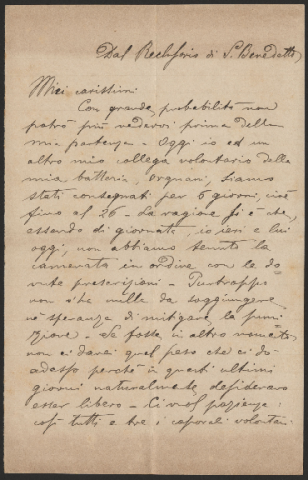 Dal Reclusorio di S. Benedetto,
Miei carissimi
Con grande probabilità non
potrò più vedervi prima della
mia partenza - Oggi io ed un
altro mio collega volontario della
mia batteria, Orgnani, siamo
stati consegnati per 6 giorni, cioè
fino al 26 - La ragione si è che,
essendo di giornata, io ieri e lui
oggi, non abbiamo tenuto la
camerata in ordine con le do-
vute prescrizioni - Purtroppo
non v'ha nulla da soggiungere
nè speranza di mitigare la puni-
zione - Se fosse in altro momento
non ci darei quel peso che ci do
adesso perchè in questi ultimi
giorni naturalmente desideravo
esser libero - Ci vuol pazienza:
così tutti e tre i caporali volontari